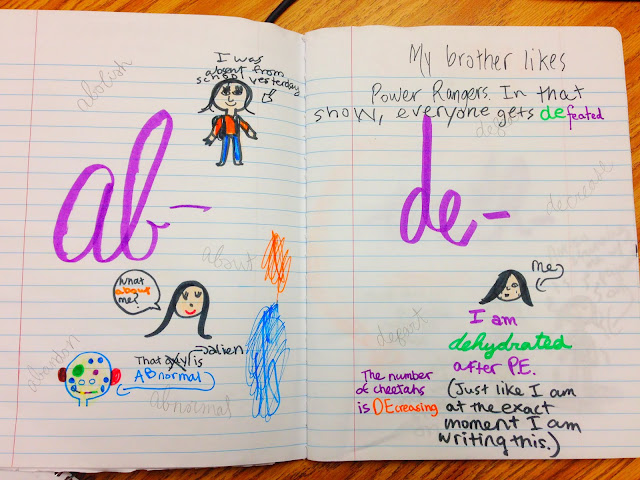 abolish
I was
absent from
school yesterday
ab-
about
What
about
me?
abandon
That axyl is
alien
ABnormal
abnormal
My brother likes
Power Rangers. In that
show, everyone gets defeated
de-
decrease
me
depart
I am
dehydrated
after PE.
(Just like I am
at the exact
moment I am
writing this.)
The number
of cheetahs
is DEcreasing